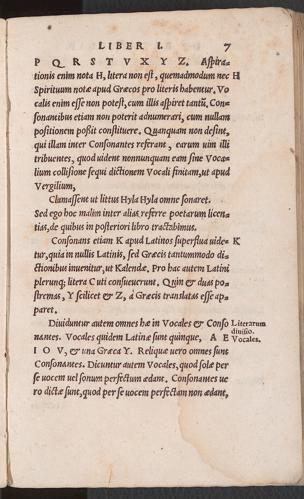 LIBER I. 7
P Q R S T V X Y Z. Aspira-
tionis enim nota H, litera non est, quemadmodum nec H
Spirituum notæ apud Græcos pro literis habentur. Vo
calis enim esse non potest, cum illis aspiret tantũ, Con-
sonantibus etiam non poterit adnumerari, cum nullam
positionem poßit constituere. Quanquam non desint,
qui illam inter Consonantes referant, earum uim illi
tribuentes, quod uident nonnunquam eam sine Voca-
lium collisione sequi dictionem Vocali finitam, ut apud
Vergilium,
Clamassent ut littus Hyla Hyla omne sonaret.
Sed ego hoc malim inter alias referre poetarum licen-
tias, de quibus in posteriori libro tractabimus.
Consonans etiam K apud Latinos superflua uide- K
tur, quia in nullis Latinis, sed Græcis tantummodo di-
ctionibus inuenitur, ut Kalendæ. Pro hac autem Latini
plerunq; litera C uti consueuerunt. Quin & duas po-
stremas, Y scilicet & Z, à Græcis translatas esse ap-
paret.
Diuiduntur autem omnes hæ in Vocales & Conso Literarum
nantes. Vocales quidem Latinæ sunt quinque, A E diuisio.
Vocales.
I O V, & una Græca Y. Reliquæ uero omnes sunt
Consonantes. Dicuntur autem Vocales, quod solæ per
se uocem uel sonum perfectum ædant. Consonantes ue
ro dictæ sunt, quod per se uocem perfectam non ædant,